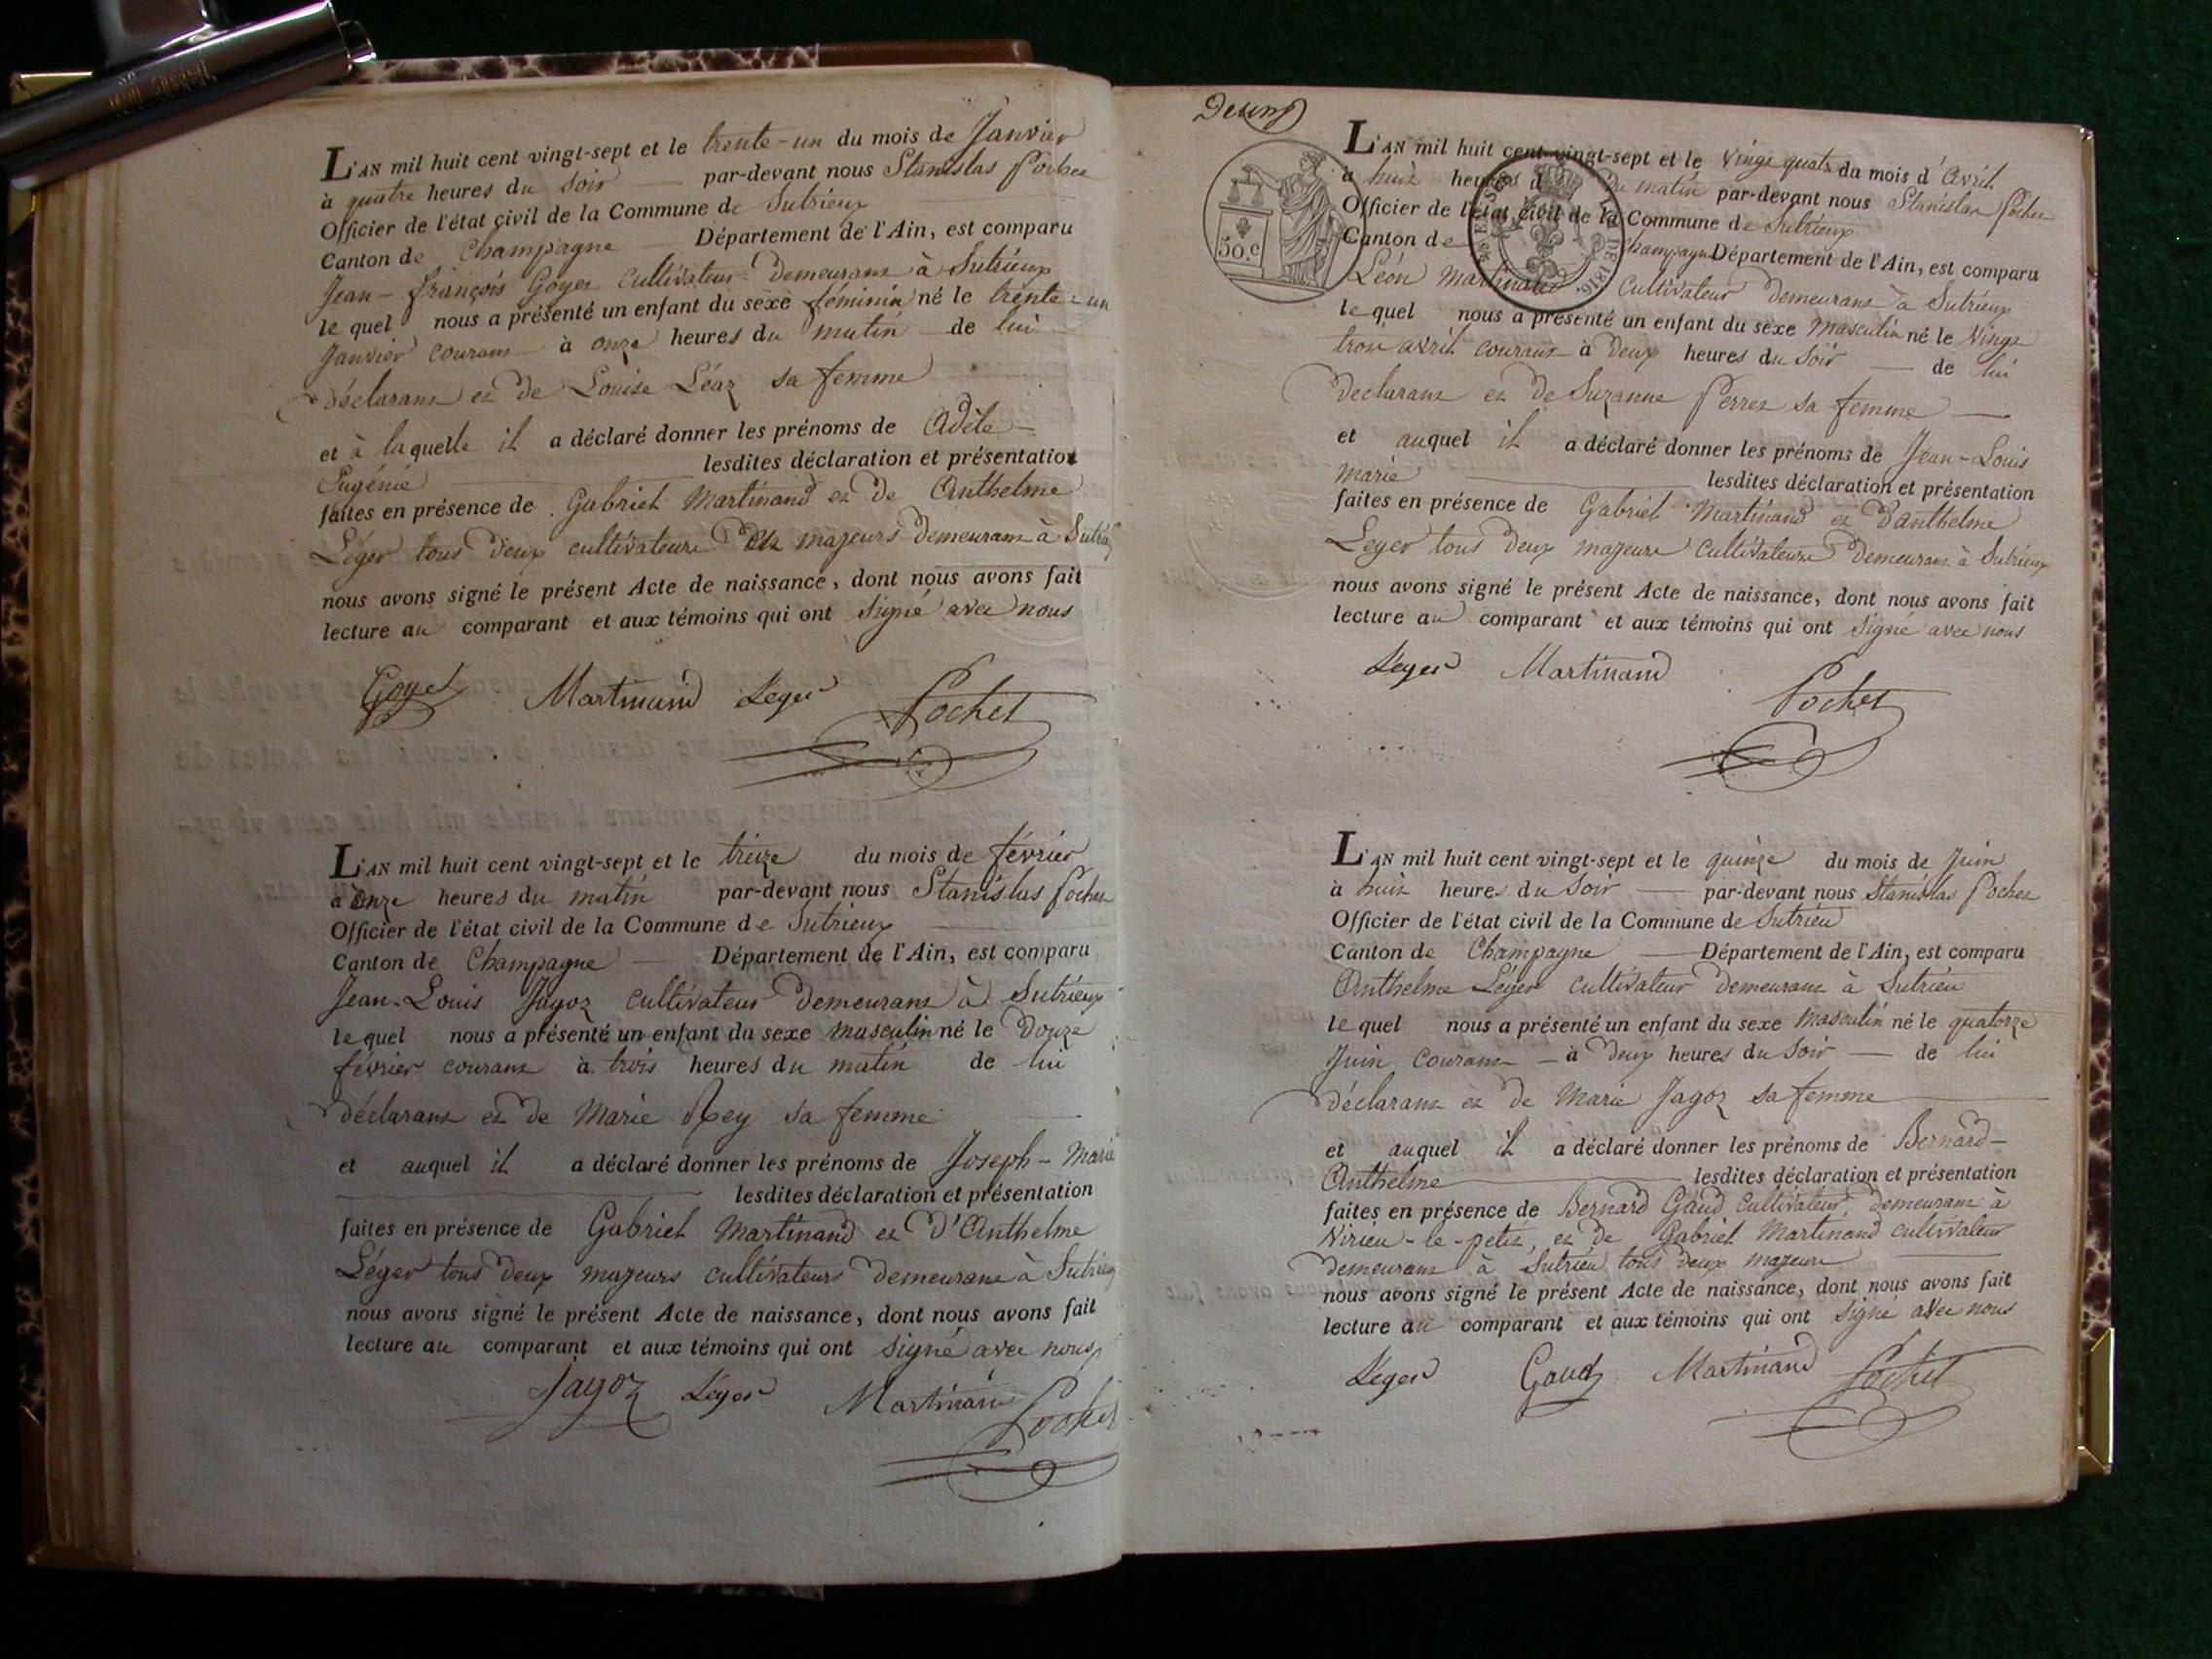 L'AN mil huit cent vingt-sept et le trente-un du mois de Janvier
à quatre heures du soir par-devant nous Stanislas Pochet
Officier de l'état civil de la Commune de Sutrieux
Canton de Champagne Département de l'Ain, est comparu
Jean-françois Goyet Cultivateur Demeurant à Sutrieux
le quel nous a présenté un enfant du sexe féminin né le trente-un
Janvier courant à onze heures du matin de lui
déclarant et de Louise Léaz sa femme
et à laquelle il a déclaré donner les prénoms de Adèle
Eugénie lesdites déclaration et présentation
faites en présence de Gabriel Martinand et de Anthelme
Léger tous deux cultivateurs majeurs demeurant à Sutrieux
nous avons signé le présent Acte de naissance, dont nous avons fait
lecture au comparant et aux témoins qui ont signé avec nous
Goyet Martinand Leger Pochet
L'AN mil huit cent vingt-sept et le treize du mois de février
à onze heures du matin par-devant nous Stanislas Pochet
Officier de l'état civil de la Commune de Sutrieux
Canton de Champagne Département de l'Ain, est comparu
Jean-Louis Jagoz cultivateur demeurant à Sutrieux
le quel nous a présenté un enfant du sexe masculin né le Douze
février courant à trois heures du matin de lui
déclarant et de Marie Rey sa femme
et auquel il a déclaré donner les prénoms de Joseph-Marie
lesdites déclaration et présentation
faites en présence de Gabriel Martinand et d'Anthelme
Léger tous deux majeurs cultivateurs demeurant à Sutrieux
nous avons signé le présent Acte de naissance, dont nous avons fait
lecture au comparant et aux témoins qui ont signé avec nous
Jagoz Léger Martinand Pochet
Deux
50.c
L'AN mil huit cent vingt-sept et le vingt quatre du mois d'Avril
à huit heures du matin par-devant nous Stanislas Pochet
Officier de l'état civil de la Commune de Sutrieux
Canton de Champagne Département de l'Ain, est comparu
Léon Martinand Cultivateur demeurant à Sutrieux
le quel nous a présenté un enfant du sexe Masculin né le Vingt
trois avril courant à deux heures du soir de lui
declarant et de Suzanne Perret sa femme
et auquel il a déclaré donner les prénoms de Jean-Louis
Marie lesdites déclaration et présentation
faites en présence de Gabriel Martinand et d'Anthelme
Leger tous deux majeurs cultivateurs demeurant à Sutrieux
nous avons signé le présent Acte de naissance, dont nous avons fait
lecture au comparant et aux témoins qui ont signé avec nous
Leger Martinand Pochet
L'AN mil huit cent vingt-sept et le quinze du mois de Juin
à huit heures du soir par-devant nous Stanislas Pochet
Officier de l'état civil de la Commune de Sutrieu
Canton de Champagne Département de l'Ain, est comparu
Anthelme Léger cultivateur demeurant à Sutrieu
le quel nous a présenté un enfant du sexe Masculin né le quatorze
Juin courant à deux heures du soir de lui
déclarant et de Marie Jagoz sa femme
et auquel il a déclaré donner les prénoms de Bernard-
Anthelme lesdites déclaration et présentation
faites en présence de Bernard Gaud Cultivateur, demeurant à
Virieu-le-petit, et de Gabriel Martinand cultivateur
demeurant à Sutrieu tous deux majeurs
nous avons signé le présent Acte de naissance, dont nous avons fait
lecture au comparant et aux témoins qui ont signé avec nous
Léger Gaud Martinand Pochet